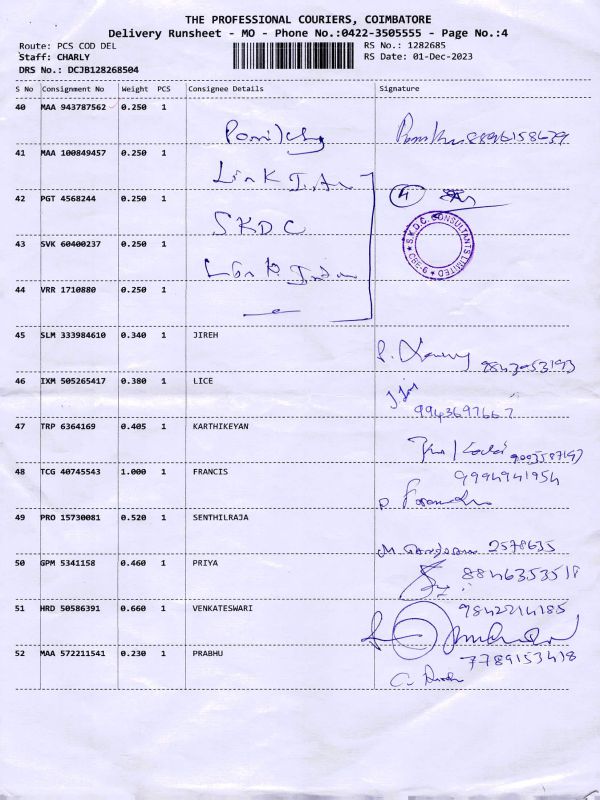 THE PROFESSIONAL COURIERS, COIMBATORE
Delivery Runsheet - MO - Phone No.:0422-3505555 - Page No.:4
Route: PCS COD DEL RS No.: 1282685
Staff: CHARLY RS Date: 01-Dec-2023
DRS No.: DCJB128268504
S No Consignment No Weight PCS Consignee Details Signature
40 MAA 943787562 0.250 1
8896158639
41 MAA 100849457 0.250 1
Link
42 PGT 4568244 0.250 1
4
SKDC
S.K.D.C. CONSULTANTS LIMITED CBE-6
43 SVK 60400237 0.250 1
44 VRR 1710880 0.250 1
45 SLM 333984610 0.340 1 JIREH
46 IXM 505265417 0.380 1 LICE
9943697667
47 TRP 6364169 0.405 1 KARTHIKEYAN
48 TCG 40745543 1.000 1 FRANCIS
9994941954
49 PRO 15730081 0.520 1 SENTHILRAJA
2578635
50 GPM 5341158 0.460 1 PRIYA
51 HRD 50586391 0.660 1 VENKATESWARI
9842214185
52 MAA 572211541 0.230 1 PRABHU
7789153418